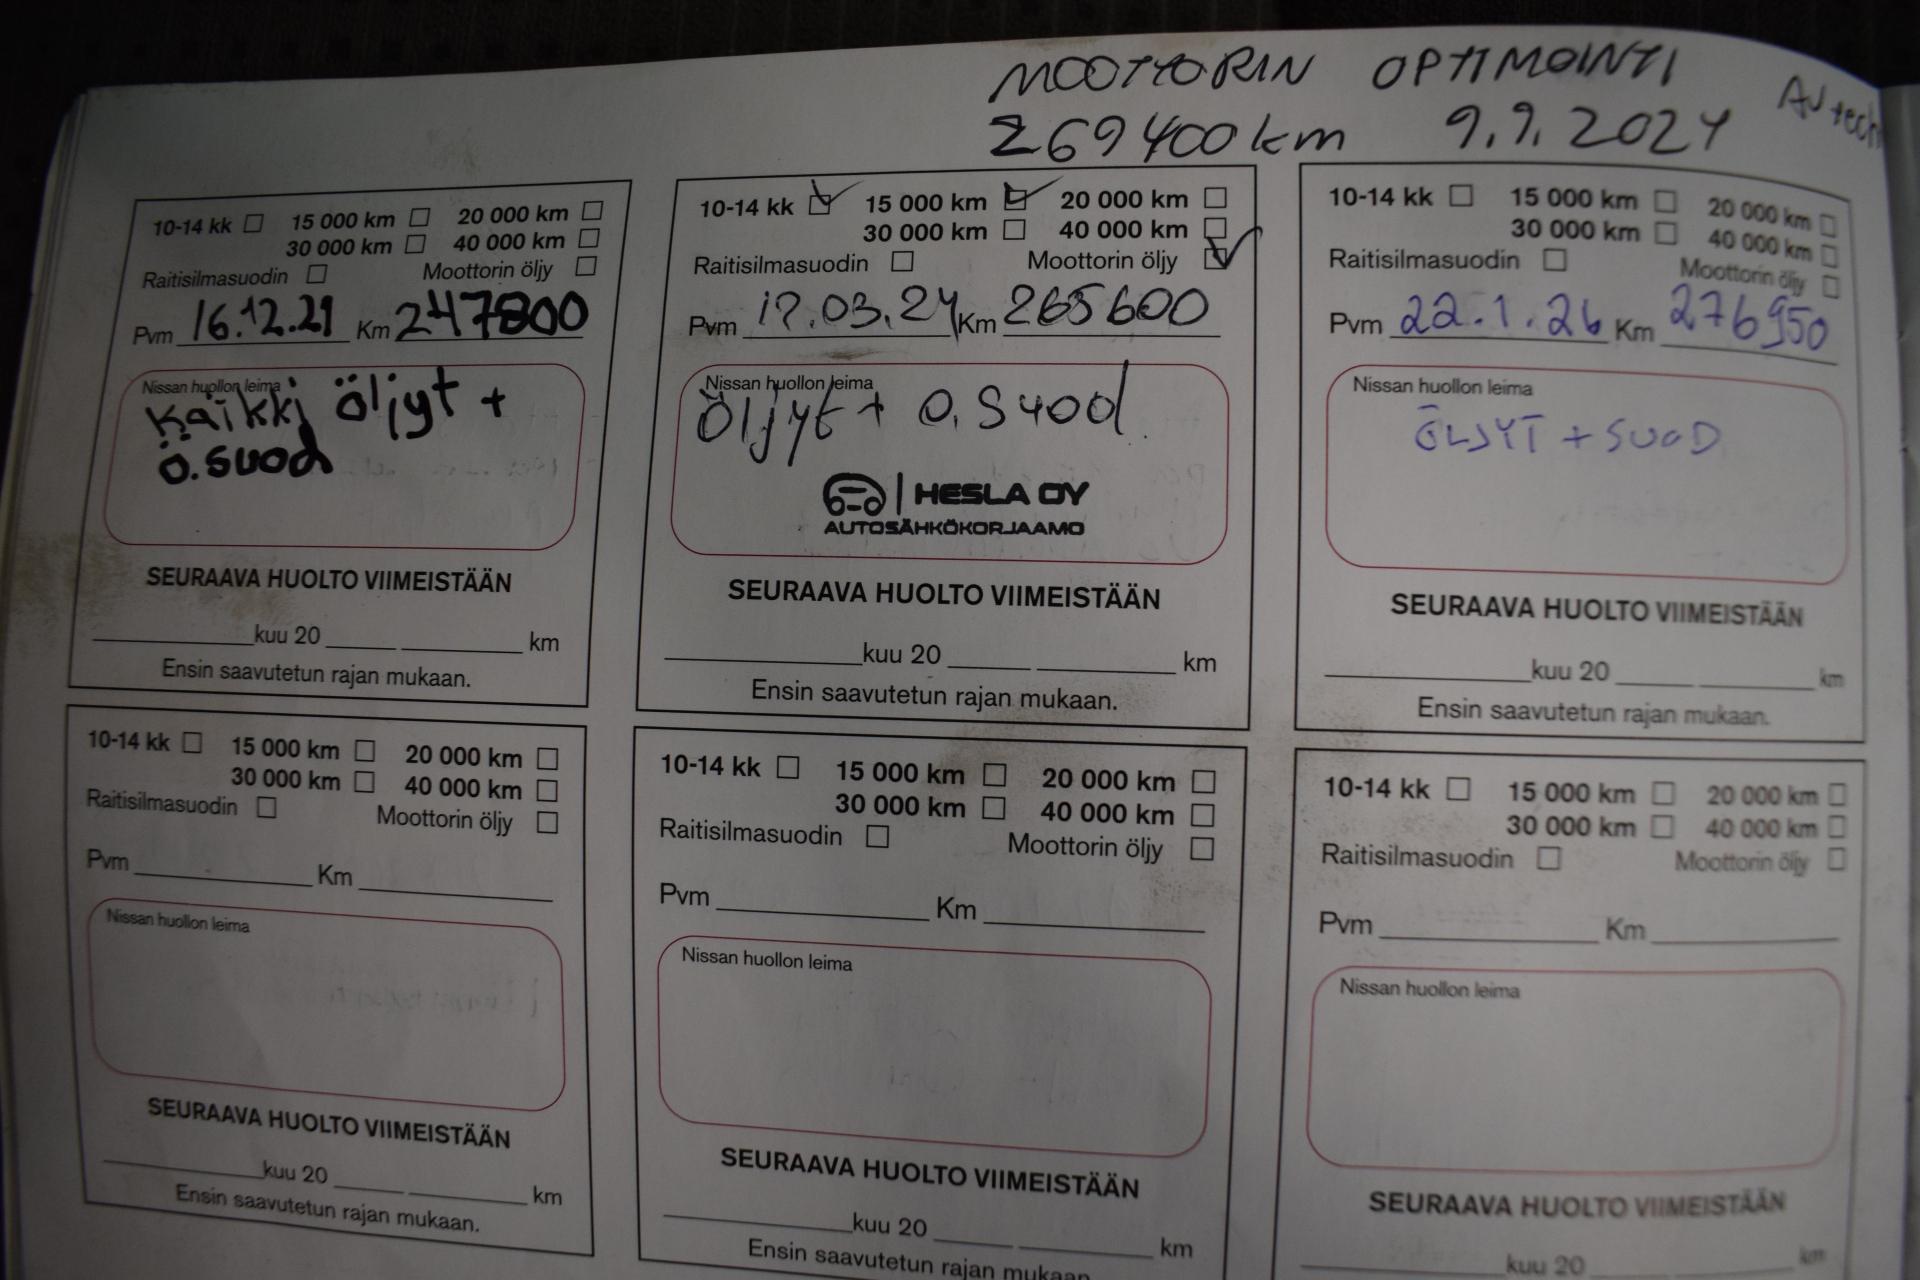 MOOTTORIN OPTIMOINTI
AV tech
269400 km 9.9.2024
10-14 kk 15 000 km 20 000 km
30 000 km 40 000 km
Raitisilmasuodin Moottorin öljy
Pvm 16.12.21 Km 247800
Nissan huollon leima
Kaikki öljyt +
ö.suod
SEURAAVA HUOLTO VIIMEISTÄÄN
kuu 20 km
Ensin saavutetun rajan mukaan.
10-14 kk 15 000 km 20 000 km
30 000 km 40 000 km
Raitisilmasuodin Moottorin öljy
Pvm 12.03.24 Km 265600
Nissan huollon leima
Öljyt + ö.suod
HESLA OY
AUTOSÄHKÖKORJAAMO
SEURAAVA HUOLTO VIIMEISTÄÄN
kuu 20 km
Ensin saavutetun rajan mukaan.
10-14 kk 15 000 km 20 000 km
30 000 km 40 000 km
Raitisilmasuodin Moottorin öljy
Pvm 22.1.26 Km 276950
Nissan huollon leima
ÖLJYT + SUOD
SEURAAVA HUOLTO VIIMEISTÄÄN
kuu 20 km
Ensin saavutetun rajan mukaan.
10-14 kk 15 000 km 20 000 km
30 000 km 40 000 km
Raitisilmasuodin Moottorin öljy
Pvm Km
Nissan huollon leima
SEURAAVA HUOLTO VIIMEISTÄÄN
kuu 20 km
Ensin saavutetun rajan mukaan.
10-14 kk 15 000 km 20 000 km
30 000 km 40 000 km
Raitisilmasuodin Moottorin öljy
Pvm Km
Nissan huollon leima
SEURAAVA HUOLTO VIIMEISTÄÄN
kuu 20 km
Ensin saavutetun rajan mukaan.
10-14 kk 15 000 km 20 000 km
30 000 km 40 000 km
Raitisilmasuodin Moottorin öljy
Pvm Km
Nissan huollon leima
SEURAAVA HUOLTO VIIMEISTÄÄN
kuu 20 km